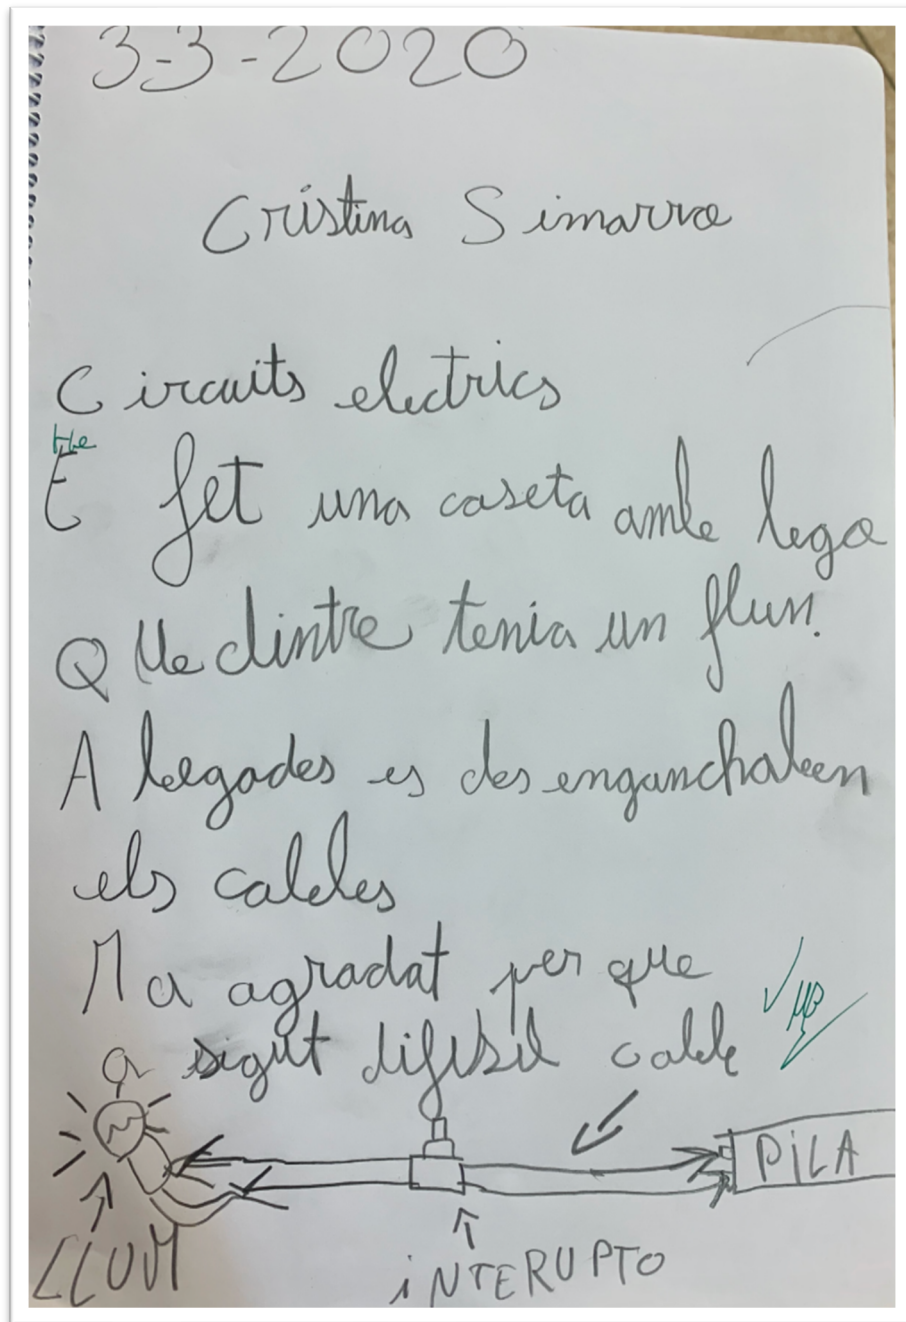 3-3-2020
Cristina Simarro
Circuits electrics
He
E fet una caseta amb lego
Que dintre tenia un flum.
A begades es desenganchaben
els cables
Ma agradat per que
a sigut difisil cable
PILA
LLUM
iNTERUPTO